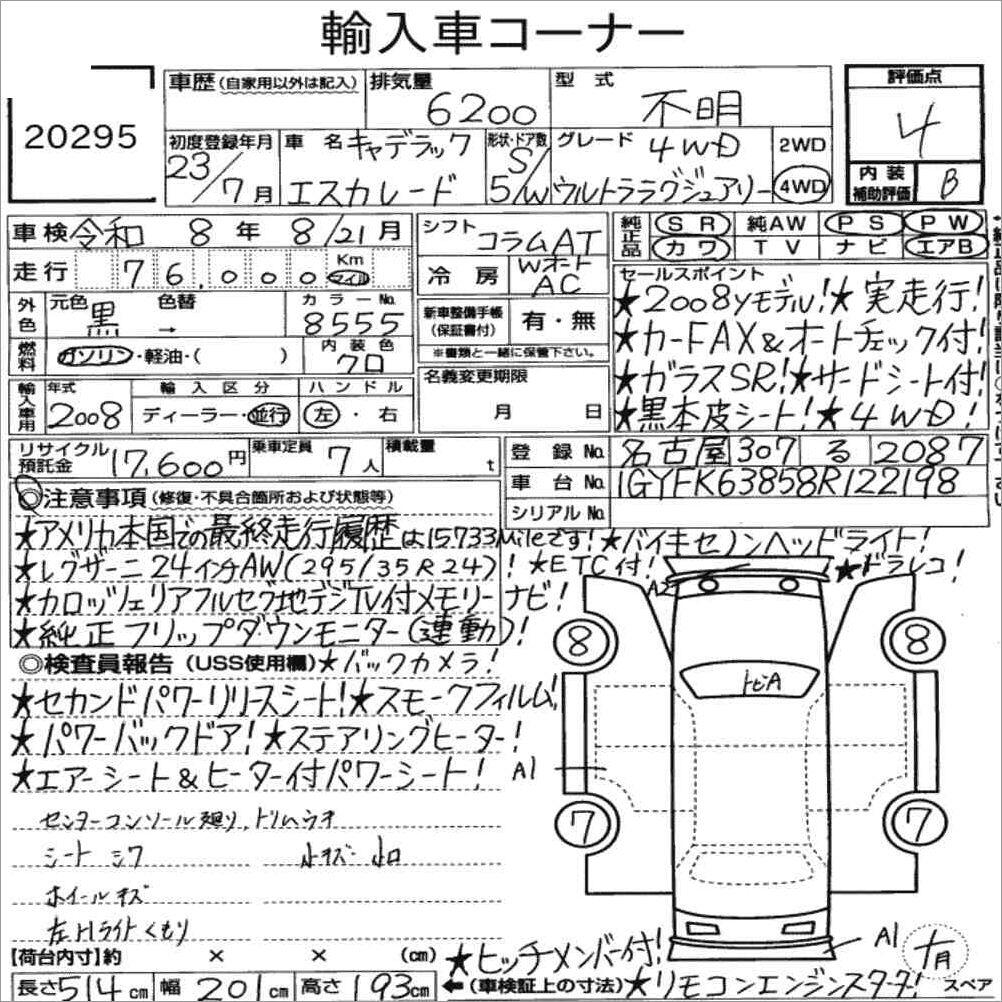 輸入車コーナー
20295
車歴(自家用以外は記入)
排気量
6200
型式
不明
評価点
4
初度登録年月
23/7月
車名
キャデラック
エスカレード
形状・ドア数
S/5/W
グレード
4WD
ウルトララグジュアリー
2WD
4WD
内装
補助評価
B
車検 令和 8年 8/21月
走行 76,000 Km マイル
シフト コラムAT
冷房 Wオート AC
純正品 SR 純AW PS PW
カワ TV ナビ エアB
外色
元色 黒
色替 →
カラーNo. 8555
内装色 クロ
燃料 ガソリン・軽油・( )
新車整備手帳
(保証書付)
有・無
※書類と一緒に保管下さい。
セールスポイント
★2008yモデル!★実走行!
★カーFAX&オートチェック付!
★ガラスSR!★サードシート付!
★黒本皮シート!★4WD!
輸入車用
年式 2008
輸入区分 ディーラー・並行
ハンドル 左・右
名義変更期限
月 日
リサイクル預託金 17,600円
乗車定員 7人
積載量 t
登録No. 名古屋307 る 2087
車台No. 1GYFK63858R122198
シリアルNo.
◎注意事項(修復・不具合箇所および状態等)
★アメリカ本国での最終走行履歴は15733Mileです!★バイキセノンヘッドライト!
★レグザーニ24インチAW(295/35R24)!★ETC付!★ドラレコ!
★カロッツェリアフルセグ地デジTV付メモリーナビ!
★純正フリップダウンモニター(連動)!
◎検査員報告(USS使用欄)★バックカメラ!
★セカンドパワーリリースシート!★スモークフィルム!
★パワーバックドア!★ステアリングヒーター!
★エアーシート&ヒーター付パワーシート!
センターコンソール廻り、トリムウキ
シート シワ 小キズ・凹
ホイールキズ
左Hライトくもり
A2
8
8
トビA
A1
7
7
A1
有
スペア
【荷台内寸】約 × × (cm)
★ヒッチメンバー付!
長さ514cm 幅201cm 高さ193cm
←(車検証上の寸法)★リモコンエンジンスターター!